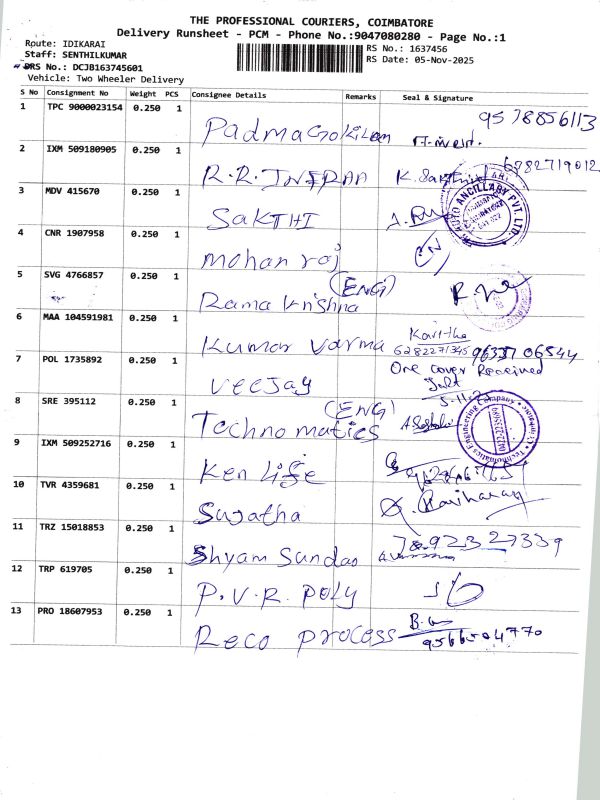 THE PROFESSIONAL COURIERS, COIMBATORE
Delivery Runsheet - PCM - Phone No.:9047080280 - Page No.:1
Route: IDIKARAI
Staff: SENTHILKUMAR
DRS No.: DCJB163745601
Vehicle: Two Wheeler Delivery
RS No.: 1637456
RS Date: 05-Nov-2025
S No Consignment No Weight PCS Consignee Details Remarks Seal & Signature
1 TPC 9000023154 0.250 1 Padma Gokilam 9578856113
2 IXM 509180905 0.250 1 R.R. INFRAA 6782719012
3 MDV 415670 0.250 1 SAKTHI
AUTO ANCILLARY PVT. LTD.
4 CNR 1907958 0.250 1 mohan raj
5 SVG 4766857 0.250 1 Rama Krishna (ENG)
6 MAA 104591981 0.250 1 Kumar Varma Kavitha
6282271345 96337 06544
7 POL 1735892 0.250 1 VEEJAY One cover Received
5-11-25
8 SRE 395112 0.250 1 Technomatics (ENG)
Technomatics Engineering Company
9 IXM 509252716 0.250 1 Ken life
10 TVR 4359681 0.250 1 Sujatha
11 TRZ 15018853 0.250 1 Shyam Sundar
12 TRP 619705 0.250 1 P.V.R. POLY
13 PRO 18607953 0.250 1 Reco process
9566504770